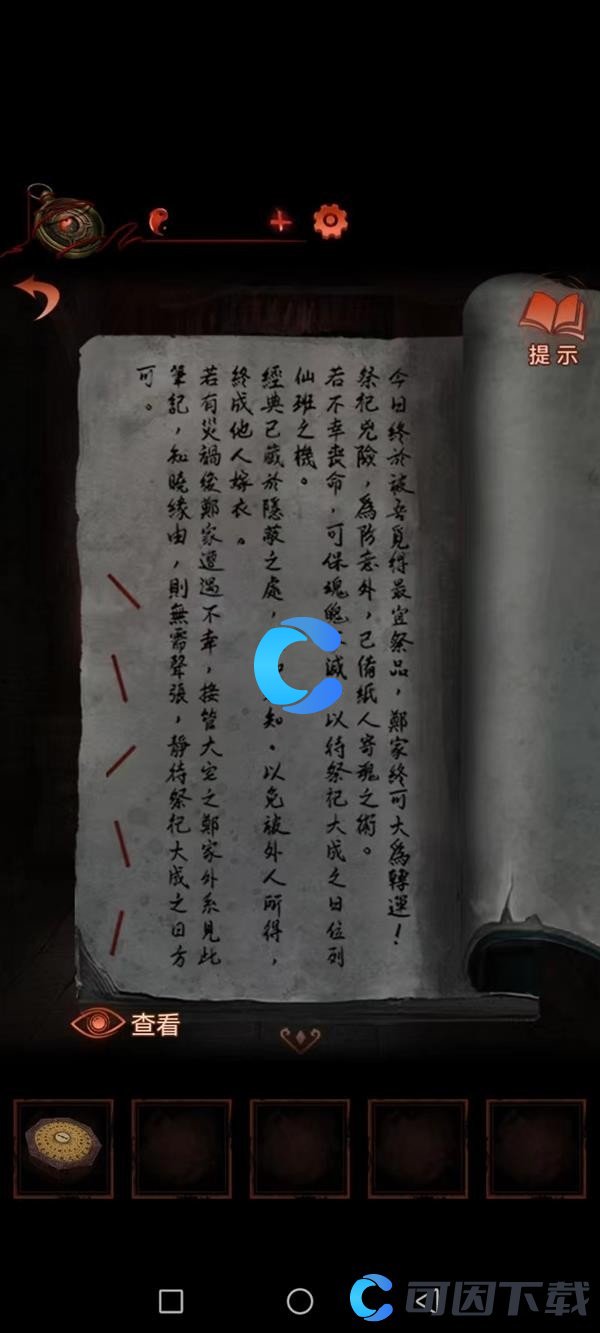 提示
今日終於被吾覓得最宜祭品，鄭家終可大爲轉運！
祭祀兇險，爲防意外，已備紙人寄魂之術。
若不幸喪命，可保魂魄 滅 以待祭祀大成之日位列
仙班之機。
經典已藏於隱蔽之處， 知。以免被外人所得，
終成他人嫁衣。
若有災禍後鄭家遭遇不幸，接管大宅之鄭家外系見此
筆記，知曉緣由，則無需聲張，靜待祭祀大成之日方
可。
查看
可因下载